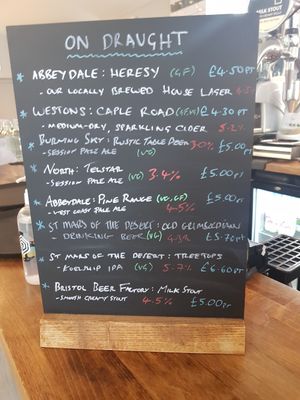 ON DRAUGHT
* ABBEYDALE: HERESY (GF) £4.50PT
- OUR LOCALLY BREWED HOUSE LAGER
* WESTONS: CAPLE ROAD £4.30PT
- MEDIUM-DRY, SPARKLING CIDER 5.2%
* BURNING SKY: RUSTIC TABLE BEER 3.0% £5.00
- SESSION PALE ALE (VG) PT
* NORTH: TELSTAR £5.00PT
- SESSION PALE ALE (VG) 3.4%
* ABBEYDALE: PINE RANGE (VG, GF) £5.00PT
- WEST COAST PALE ALE 4.5%
* ST MARS OF THE DESERT: OLD
- DRINKING BEER (VG) £5.70PT
* ST MARS OF THE DESERT: TREETOPS
- KOELSHIP IPA (VG) 5.7% £6.60PT
* BRISTOL BEER FACTORY: MILK STOUT
- SMOOTH CREAMY STOUT 4.5% £5.00PT
MILK STOUT